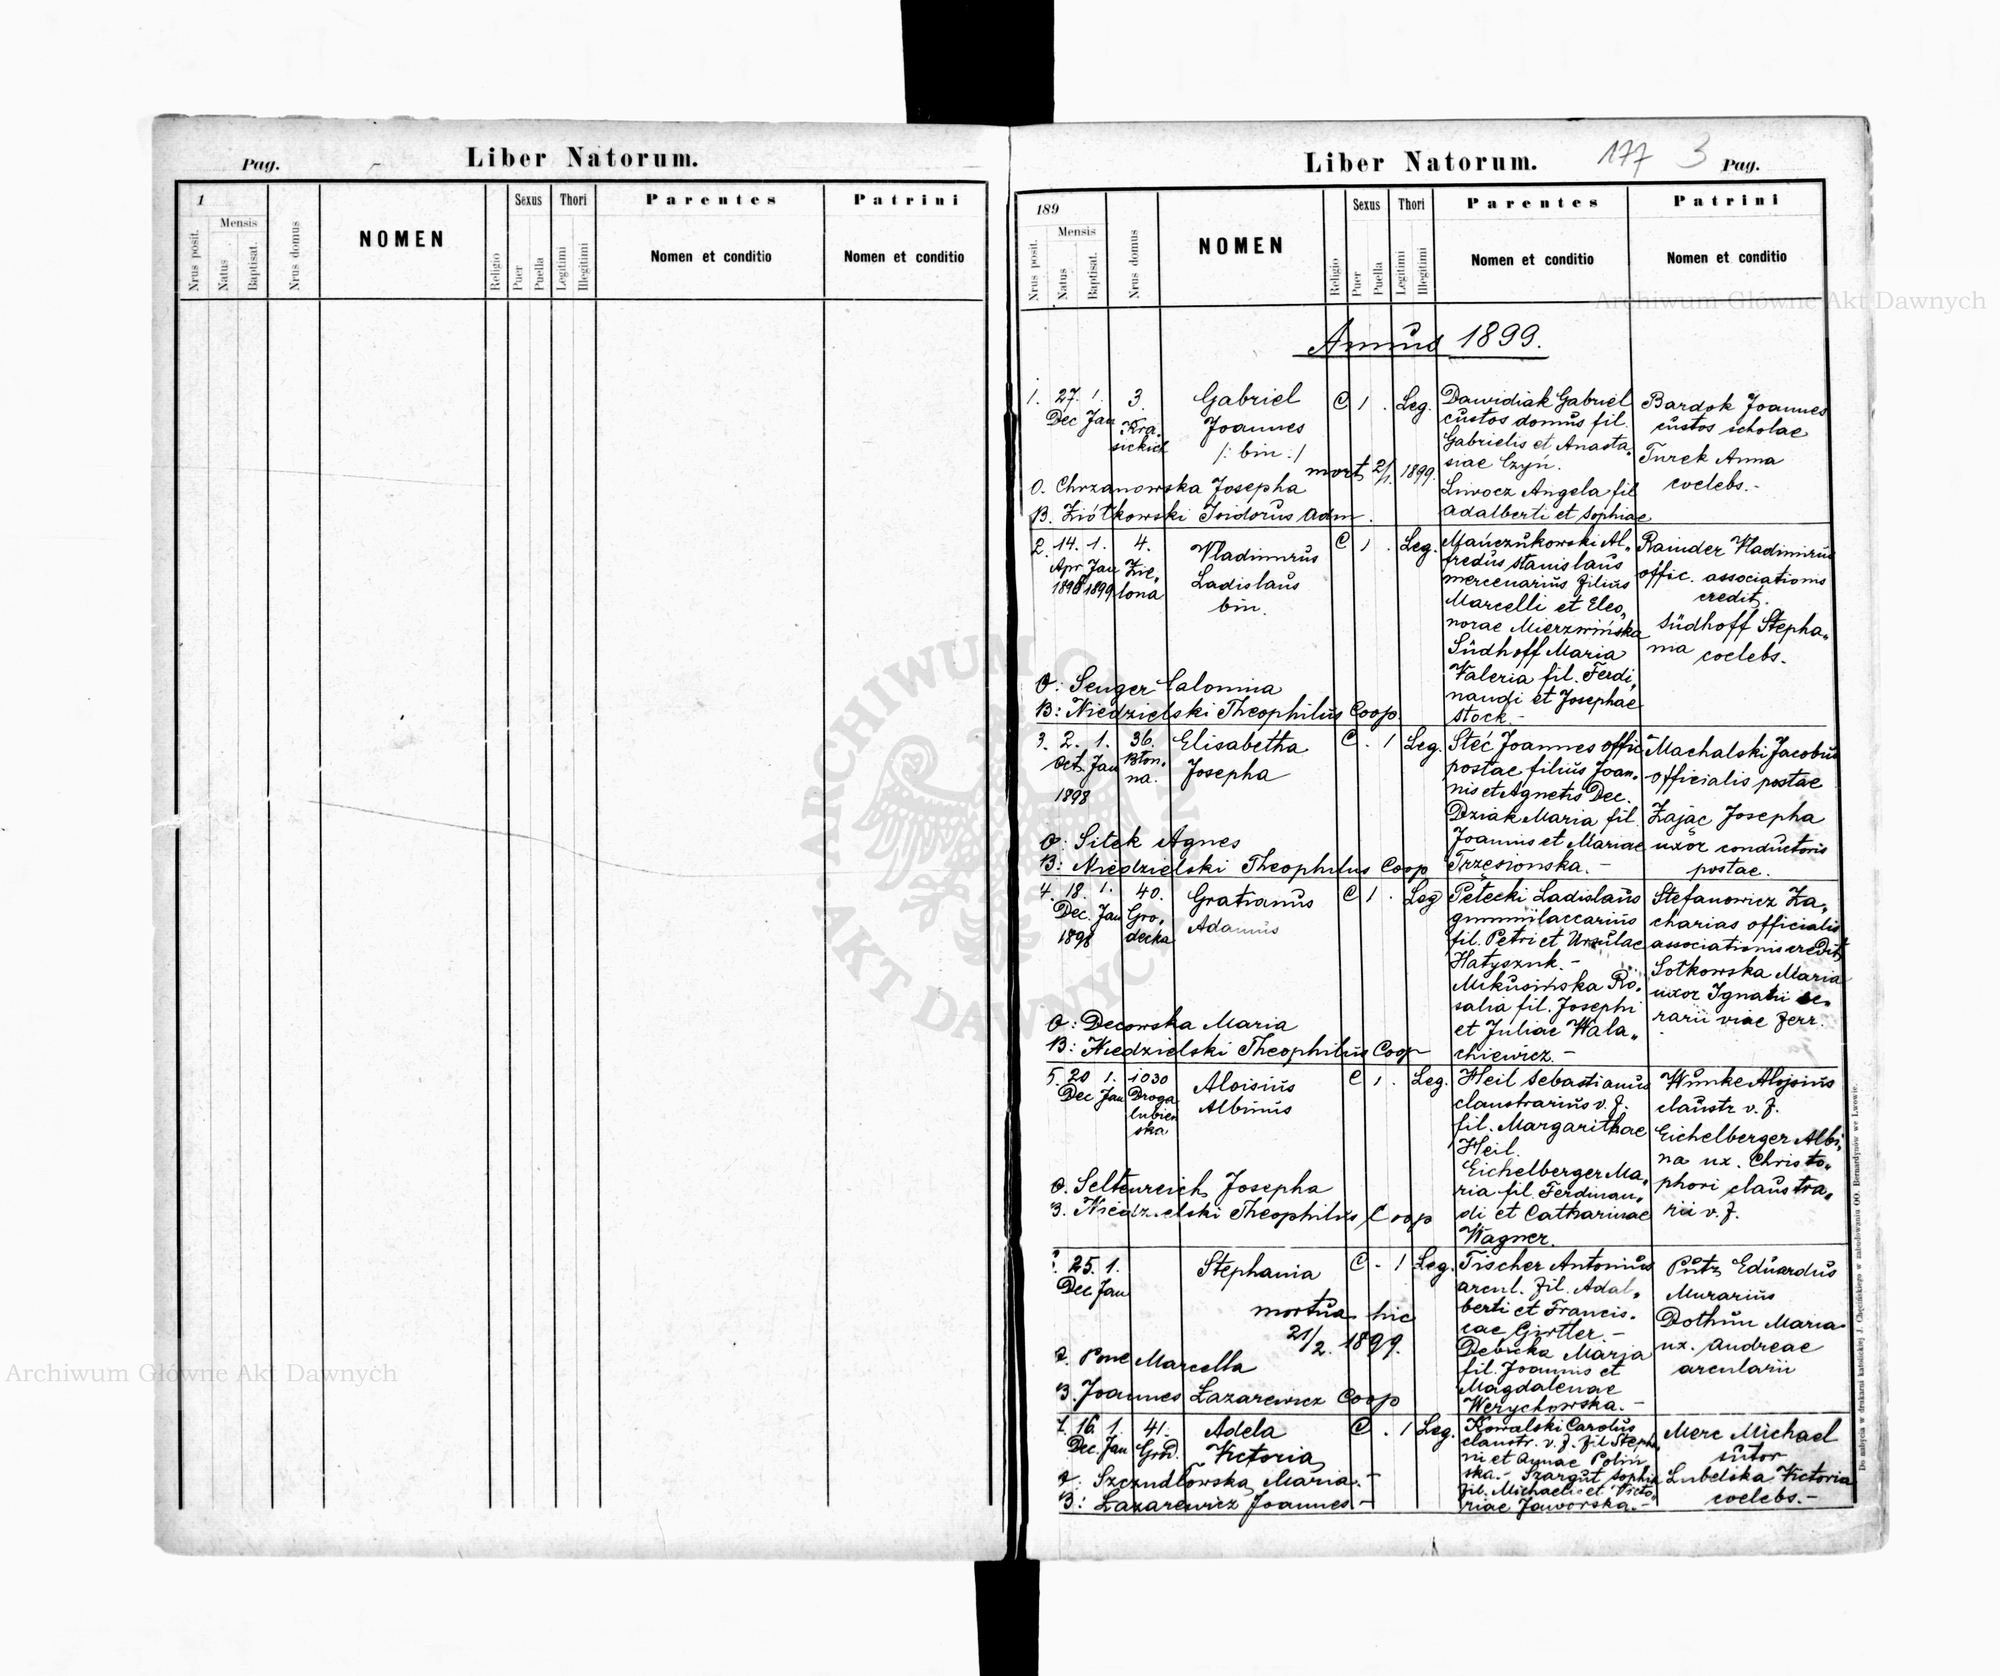 Pag.
Liber Natorum.
1
Mensis
Nrus posit.
Natus
Baptisat.
Nrus domus
NOMEN
Religio
Sexus
Puer
Puella
Thori
Legitimi
Illegitimi
Parentes
Nomen et conditio
Patrini
Nomen et conditio
Liber Natorum.
177 3
Pag.
189
Mensis
Nrus posit.
Natus
Baptisat.
Nrus domus
NOMEN
Religio
Sexus
Puer
Puella
Thori
Legitimi
Illegitimi
Parentes
Nomen et conditio
Patrini
Nomen et conditio
Annus 1899.
1. 27. 1. 3.
Dec Jan Kra-
sickich
Gabriel
Joannes
/: bin :/
C 1 . Leg.
mort 2/1. 1899.
O. Chrzanowska Josepha
B. Ziółkowski Isidorus Adm.
Dawidiak Gabriel
custos domus fil.
Gabrielis et Anasta-
siae Czyń.
Liwocz Angela fil
Adalberti et Sophiae
Bardok Joannes
custos scholae
Turek Anna
coelebs.-
2. 14. 1. 4.
Apr Jan Zie-
1898 1899 lona
Vladimirus
Ladislaus
bin.
C 1 . Leg.
O: Senger Calomina
B: Niedzielski Theophilus Coop
Mańczukowski Al-
fredus Stanislaus
mercenarius filius
Marcelli et Eleo-
norae Mierzwińska
Südhoff Maria
Valeria fil. Ferdi-
nandi et Josephae
Stock.-
Rainder Vladimirus
offic. associationis
credit.
Südhoff Stepha-
nia coelebs.-
3. 2. 1. 36.
Oct. Jan Błon-
na.
1898
Elisabetha
Josepha
C . 1 Leg.
O: Sitek Agnes
B: Niedzielski Theophilus Coop
Steć Joannes offic.
postae filius Joan-
nis et Agnetis Dec.
Dziak Maria fil.
Joannis et Mariae
Trzęsionska.-
Machalski Jacobus
officialis postae
Zając Josepha
uxor conductoris
postae.
4. 18. 1. 40.
Dec. Jan Gro-
1898 decka
Gratianus
Adamus
C 1 . Leg
O: Decowska Maria
B: Niedzielski Theophilus Coop
Petecki Ladislaus
gummilaccarius
fil. Petri et Ursulae
Hatyszuk.-
Mikusińska Ro-
salia fil. Josephi
et Juliae Wala-
chiewicz.-
Stefanowicz Za-
charias officialis
associationis credit.
Sotkowska Maria
uxor Ignatii
rarii viae ferr.
5. 20 1. 1030
Dec Jan Droga
lubień
ska
Aloisius
Albinus
C 1 . Leg.
O. Seltenreich Josepha
B. Niedzielski Theophilus Coop
Heil Sebastianus
claustrarius v. f.
fil. Margarithae
Heil.
Eichelberger Ma-
ria fil. Ferdinan-
di et Catharinae
Wagner.
Wunke Alojsius
claustr v. f.
Eichelberger Albi-
na ux. Christo-
phori claustra-
rii v. f.
25. 1.
Dec Jan
Stephania
C . 1 Leg.
mortua hic
21/2. 1899.
Marcella
B. Joannes Łazarewicz Coop
Tischer Antonius
arcul. fil. Adal-
berti et Francis-
cae Girtler.-
Debicka Maria
fil. Joannis et
Magdalenae
Werychowska.-
Putz Eduardus
Murarius
Dothun Maria
ux. Andreae
arcularii
7. 16. 1. 41.
Dec. Jan Gród.
Adela
Victoria
C . 1 Leg.
O: Szczudłowska Maria.-
B: Łazarewicz Joannes.-
Kowalski Carolus
claustr. v. f. fil Steph-
ni et Annae Polin
ska.- Szargut Sophia
fil. Michaelis et Victo-
riae Jaworska.-
Merc Michael
sutor
Lubelska Victoria
coelebs.-
Do nabycia w drukarni katolickiej J. Chęcińskiego w zabudowaniu OO. Bernardynów we Lwowie.
Archiwum Główne Akt Dawnych
Archiwum Główne Akt Dawnych